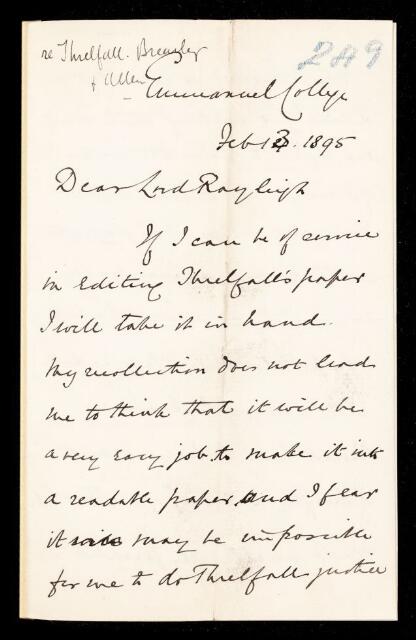 re Threlfall. Brearley
+ Allen
289
Emmanuel College
Feb 13. 1895
Dear Lord Rayleigh
If I can be of service
in editing Threlfall's paper
I will take it in hand.
My recollection does not lead
me to think that it will be
a very easy job to make it into
a readable paper and I fear
it may be impossible
for me to do Threlfall justice